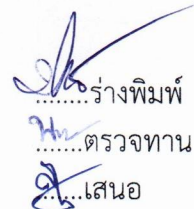 ........ร่างพิมพ์
........ตรวจทาน
........เสนอ